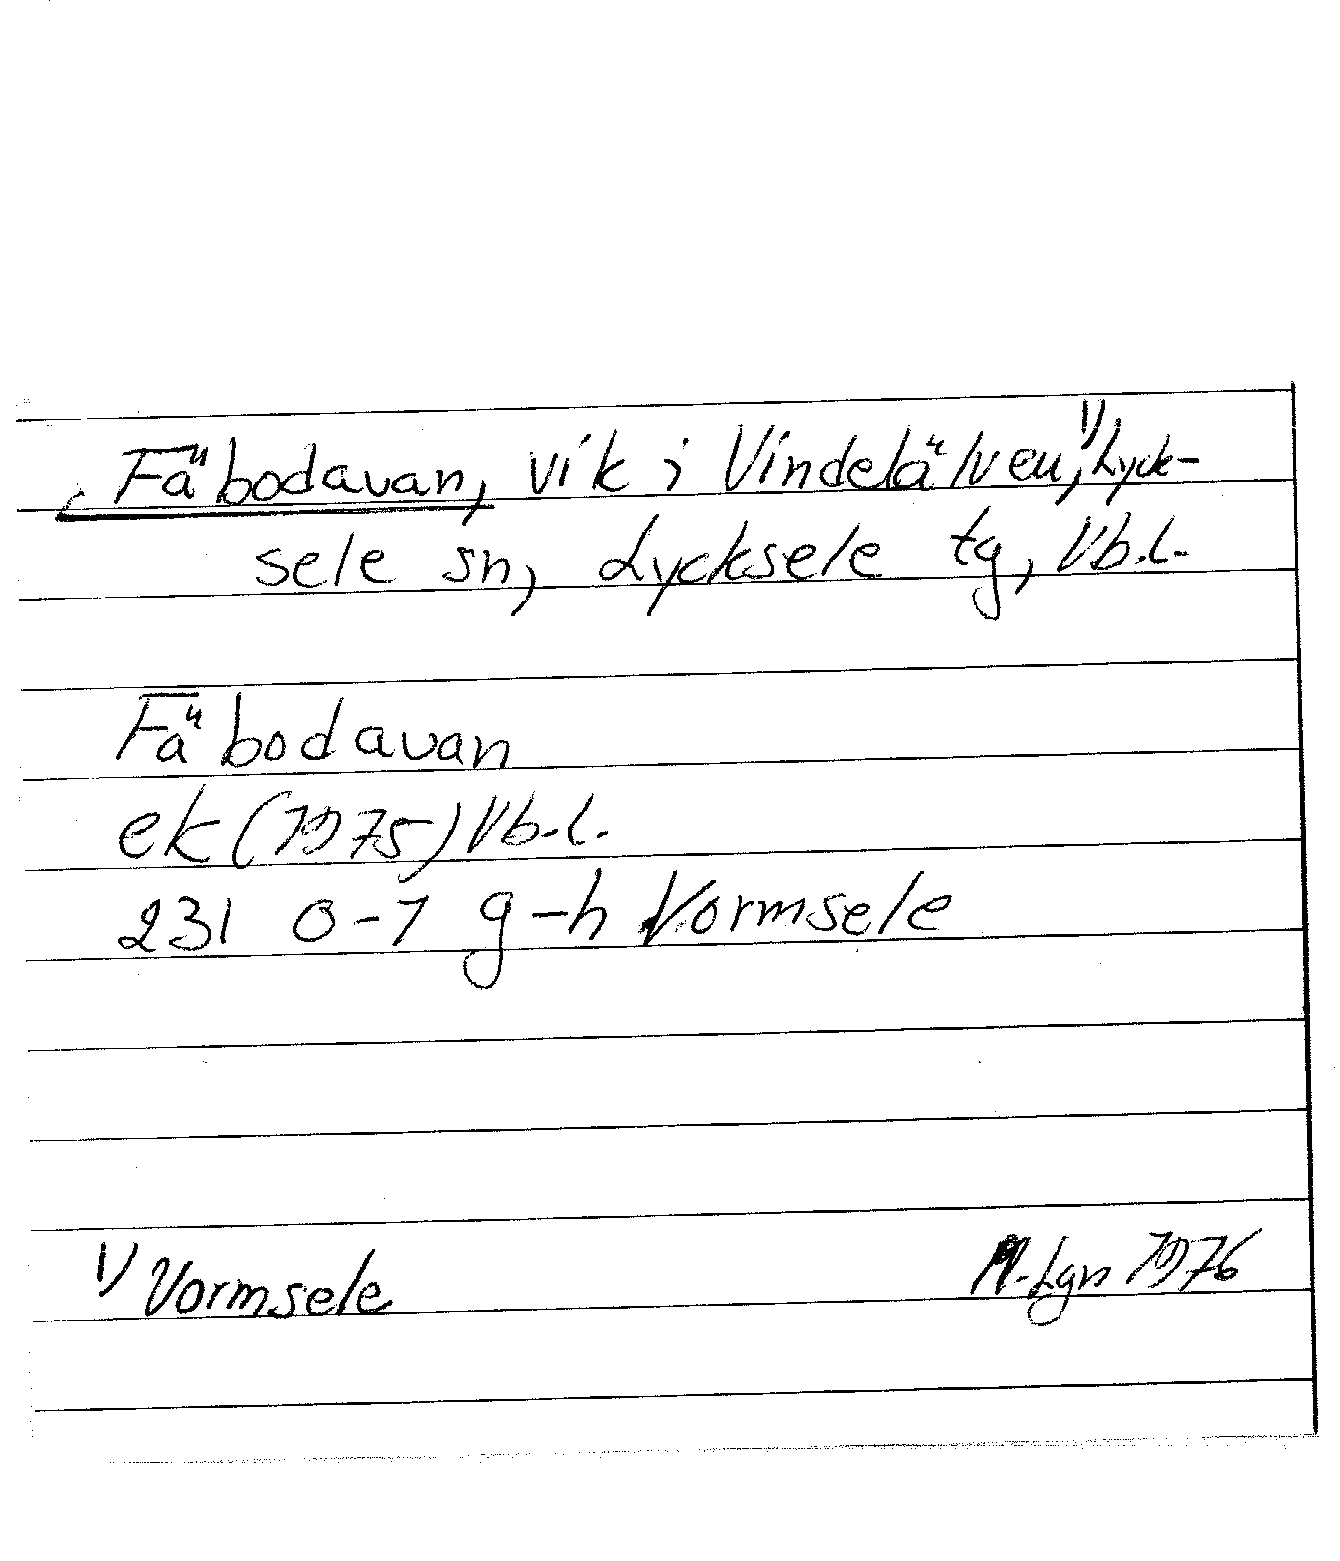 Fäbodavan, vik i Vindelälven,¹⁾ Lyck-
sele sn, Lycksele tg, Vb.l.
Fäbodavan
ek (1975) Vb.l.
231 0-1 g-h Vormsele
1) Vormsele
Lgn 1976